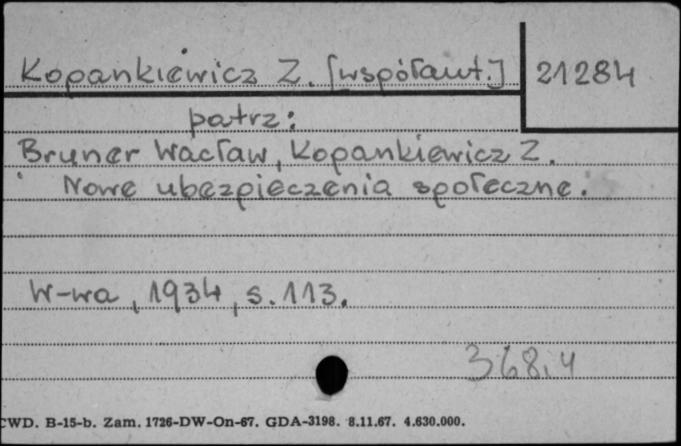 Kopankiewicz Z. [współaut.] 21284
patrz:
Bruner Wacław, Kopankiewicz Z.
Nowe ubezpieczenia społeczne.
W-wa, 1934, s. 113.
368.4
CWD. B-15-b. Zam. 1726-DW-On-67. GDA-3198. 8.11.67. 4.630.000.